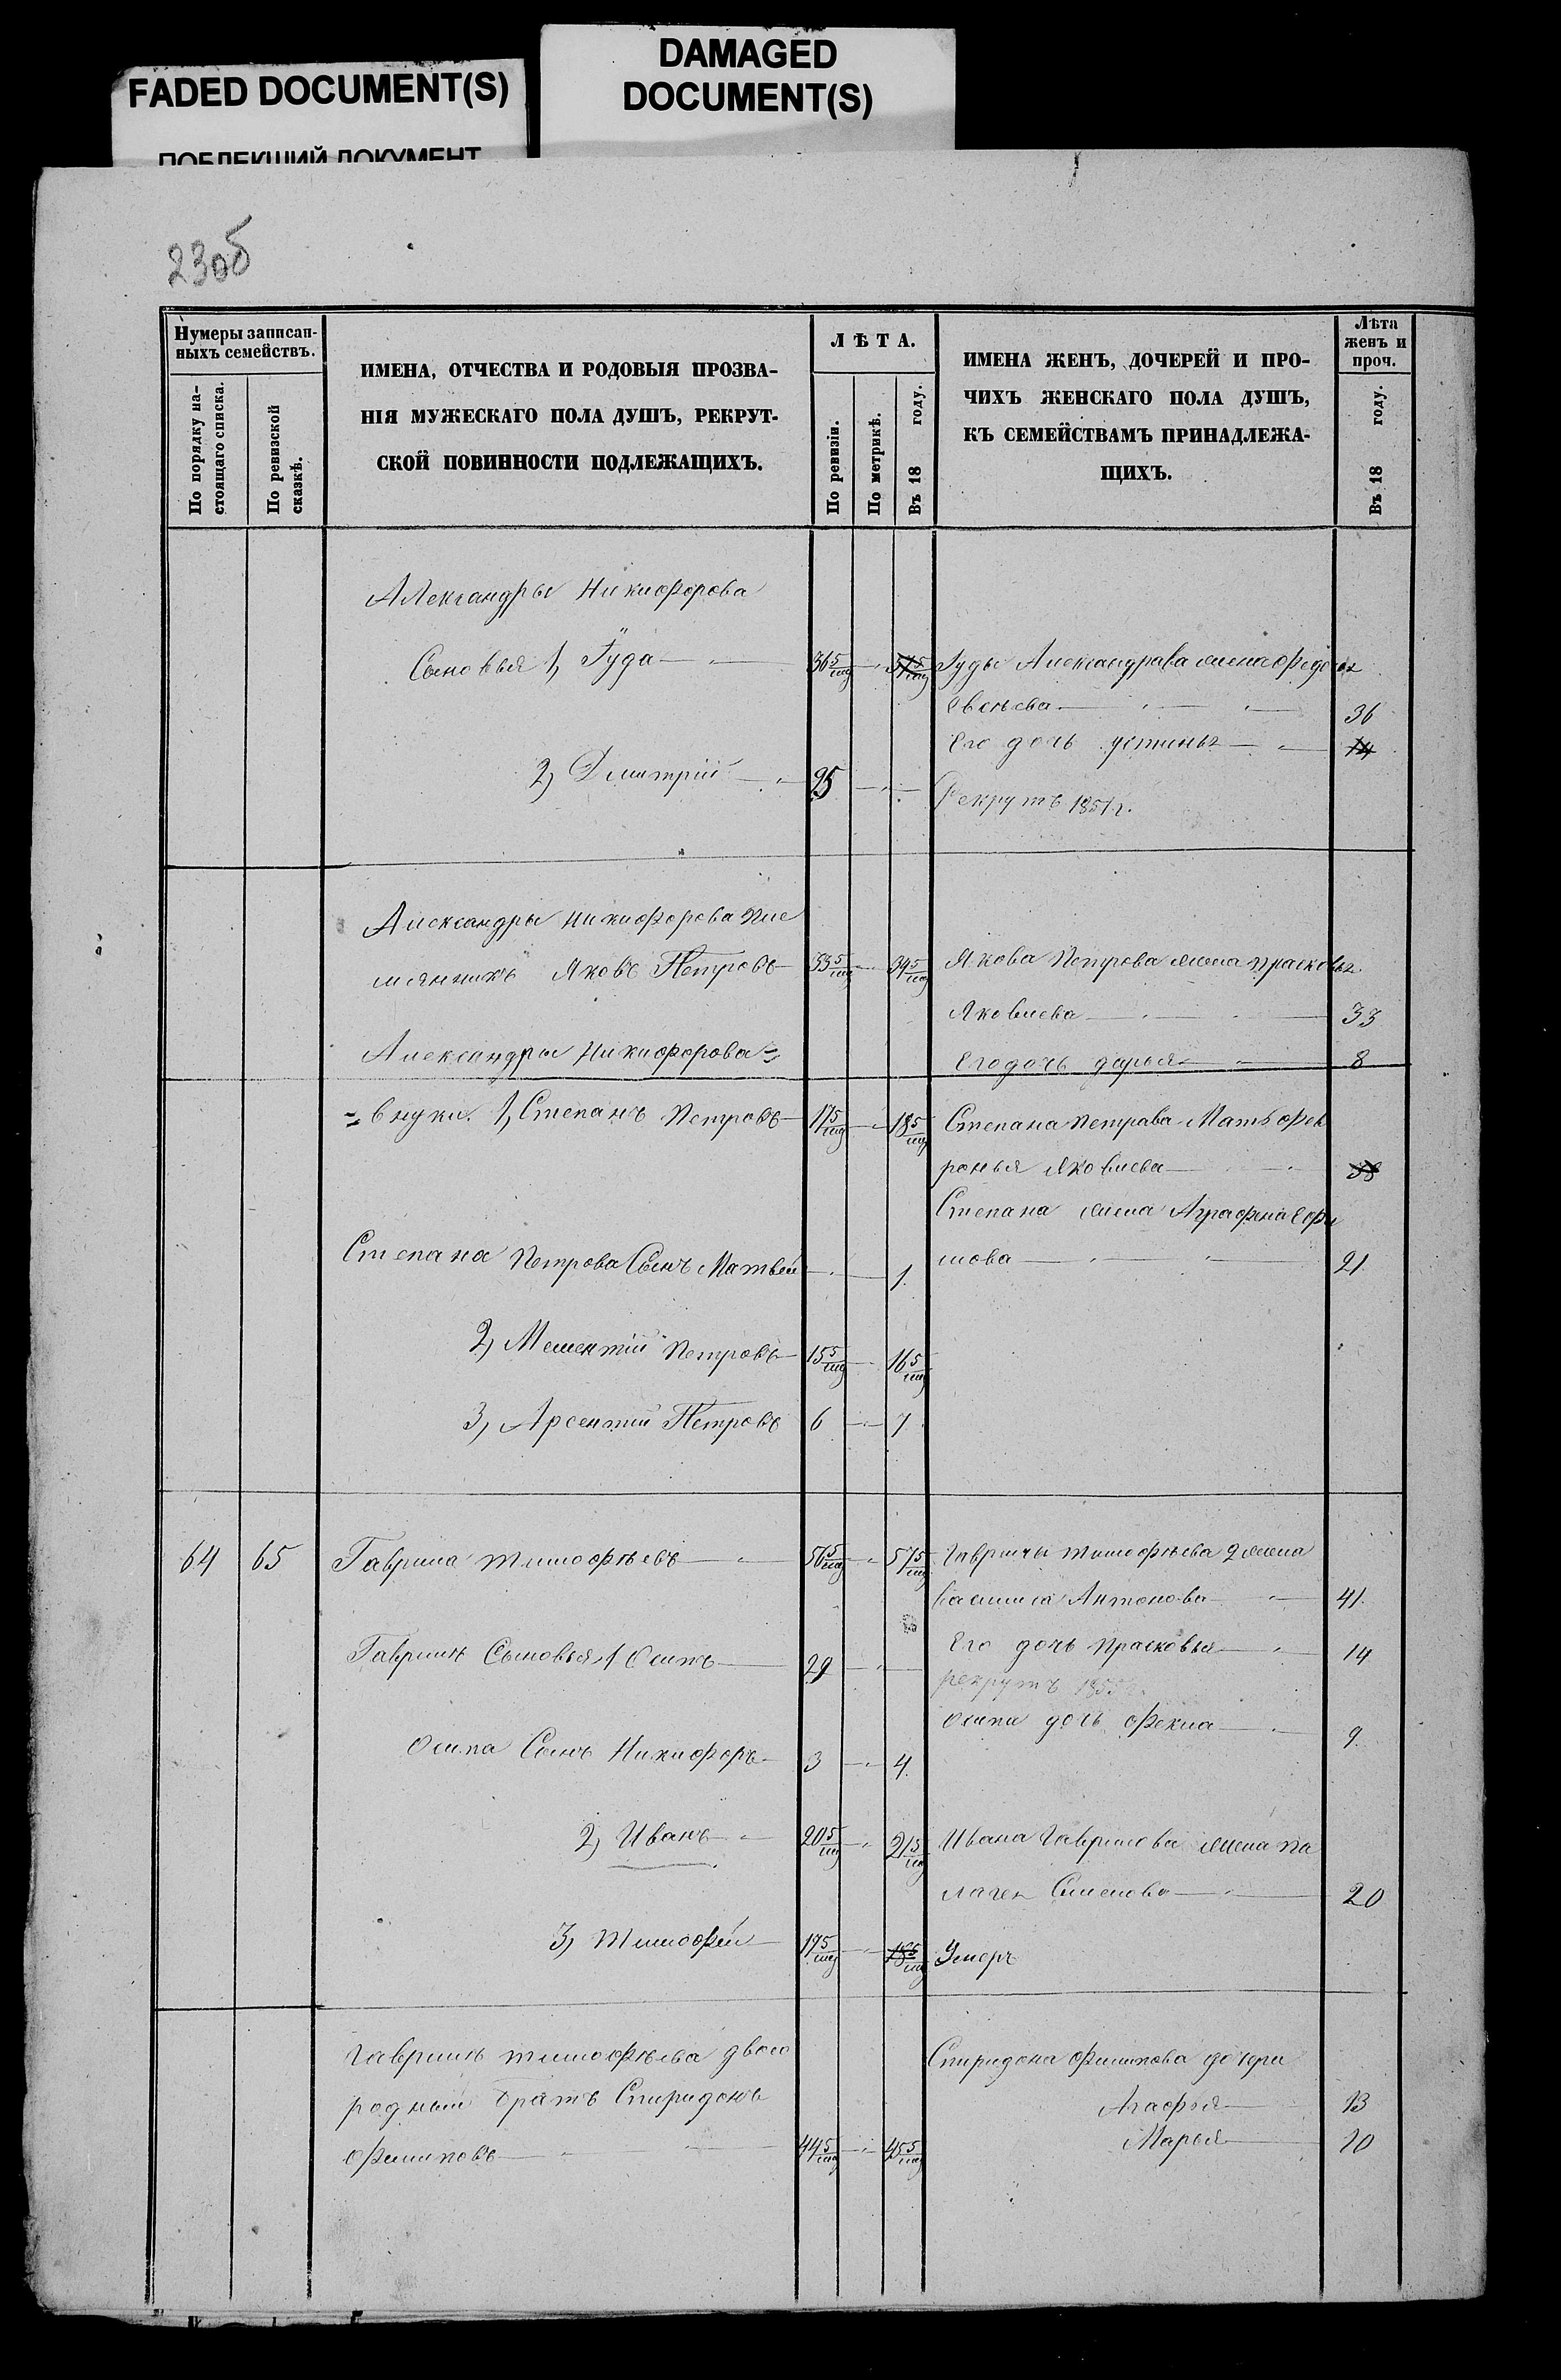 FADED DOCUMENT(S)
DAMAGED
DOCUMENT(S)
ПОБЛЕКШИЙ ДОКУМЕНТ
230б
Нумеры записан-
ныхъ семействъ.
По порядку на-
стоящаго списка.
По ревизской
сказкѣ.
ИМЕНА, ОТЧЕСТВА И РОДОВЫЯ ПРОЗВА-
НІЯ МУЖЕСКАГО ПОЛА ДУШЪ, РЕКРУТ-
СКОЙ ПОВИННОСТИ ПОДЛЕЖАЩИХЪ.
ЛѢТА.
По ревизіи.
По метрикѣ.
Въ 18 году.
ИМЕНА ЖЕНЪ, ДОЧЕРЕЙ И ПРО-
ЧИХЪ ЖЕНСКАГО ПОЛА ДУШЪ,
КЪ СЕМЕЙСТВАМЪ ПРИНАДЛЕЖА-
ЩИХЪ.
Лѣта
женъ и
проч.
Въ 18 году.
Александры Никифорова
Сыновья 1, Іуда 36 5/мц Іуды Александрава жена Федосья
36
Его дочь устинья 14
2) Дмитрій 25
Рекрутъ 1851 г.
Александры Никифорова пле
мянникъ Яковъ Петровъ 33 5/мц 34 5/мц Якова Петрова жена прасковья
Яковлева 33
Александры Никифорова =
Его дочь дарья 8
= внуки 1, Степанъ Петровъ 17 5/мц 18 5/мц Степана Петрава Мать Фев
ронья Яковлева 38
Степана жена Аграфена Ефи
Степана Петрова Сынъ Матвей 1 мова 21
2) Мелентій Петровъ 15 5/мц 16 5/мц
3, Арсентій Петровъ 6 7
64 65 Гаврила тимофѣевъ 56 5/мц 57 5/мц Гаврилы тимофѣева 2 жена
василиса Антонова 41
Его дочь прасковья 14
Гаврилы Сыновья 1 Осипъ 29
рекрутъ 1855 г.
Осипа дочь Фекла 9
Осипа Сынъ Никифоръ 3 4
2) Иванъ 20 5/мц 21 5/мц Ивана Гаврилова жена па
лагея Семенова 20
3) тимофей 17 5/мц 18 5/мц Умеръ
Гаврилы тимофѣева двою
родный братъ Спиридонъ
Филиповъ 44 5/мц 45 5/мц
Спиридона Филипова дочери
Агафья 13
Марья 10